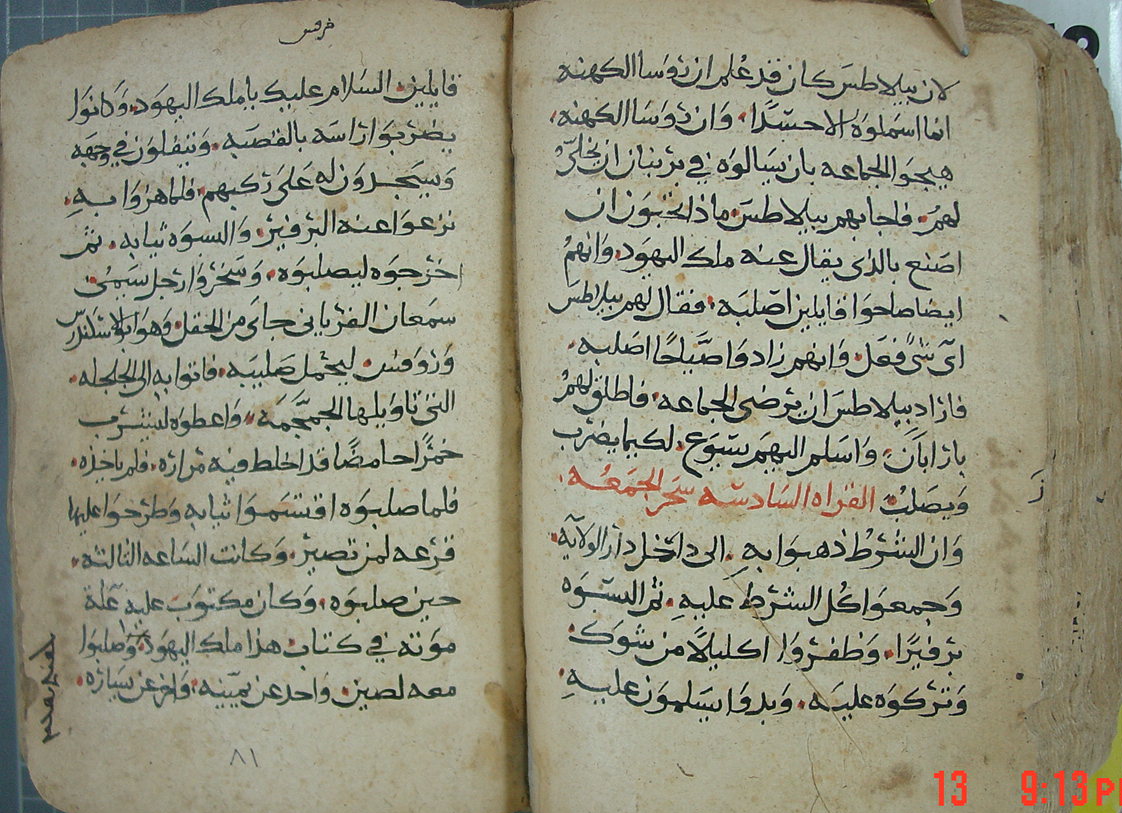 لان بيلاطس كان قد علم ان روسا الكهنه
انما اسملوه الا حسدا. وان روسا الكهنه.
هيجوا الجماعه بان يسالوه في بربنان ان يخلي
لهم. فاجابهم بيلاطس ماذا تحبون ان
اصنع بالذي يقال عنه ملك اليهود. وانهم
ايضا صاحوا قايلين اصلبه. فقال لهم بيلاطس
اي شي فعل. وانهم زادوا صياحا اصلبه.
فاراد بيلاطس ان يرضي الجماعه. فاطلق لهم
بارابان. واسلم اليهم يسوع. لكيما يضرب
ويصلب. القراه السادسه سحر الجمعه.
وان الشرط ذهبوا به. الى داخل دار الولايه.
وجمعوا كل الشرط عليه. ثم البسوه
برفيرا. وظفروا اكليلا من شوك.
وتركوه عليه. وبدوا يسلمون عليه.
مرقس
قايلين. السلام عليك يا ملك اليهود. وكانوا
يضربوا راسه بالقصبه. ويتفلون في وجهه
ويسجدون له على ركبهم. فلما هزوا به.
نزعوا عنه البرفير. والبسوه ثيابه. ثم
اخرجوه ليصلبوه. وسخروا رجل يسمى
سمعان القرياني جاي من الحقل. وهو ابو الاسكندر
وروفس. ليحمل صليبه. فاتوا به الى الجلجله.
التي تاويلها الجمجمه. واعطوه ليشرب
خمرا حامضا قد اخلط فيه مراره. فلم ياخذه.
فلما صلبوه اقتسموا ثيابه وطرحوا عليها
قرعه لمن تصير. وكانت الساعه الثالثه.
حين صلبوه. وكان مكتوب عليه علة
موته في كتاب هذا ملك اليهود. وصلبوا
معه لصين. واحد عن يمينه. واخر عن يساره.
٨١
13 9:13